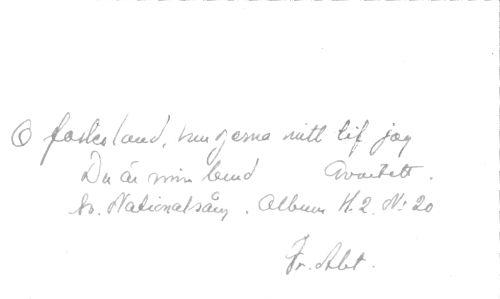 O fosterland, hur gerna mitt lif jag
Du är min brud Qvartett.
Sv. Nationalsång. Album H. 2. No 20
Fr. Abt.